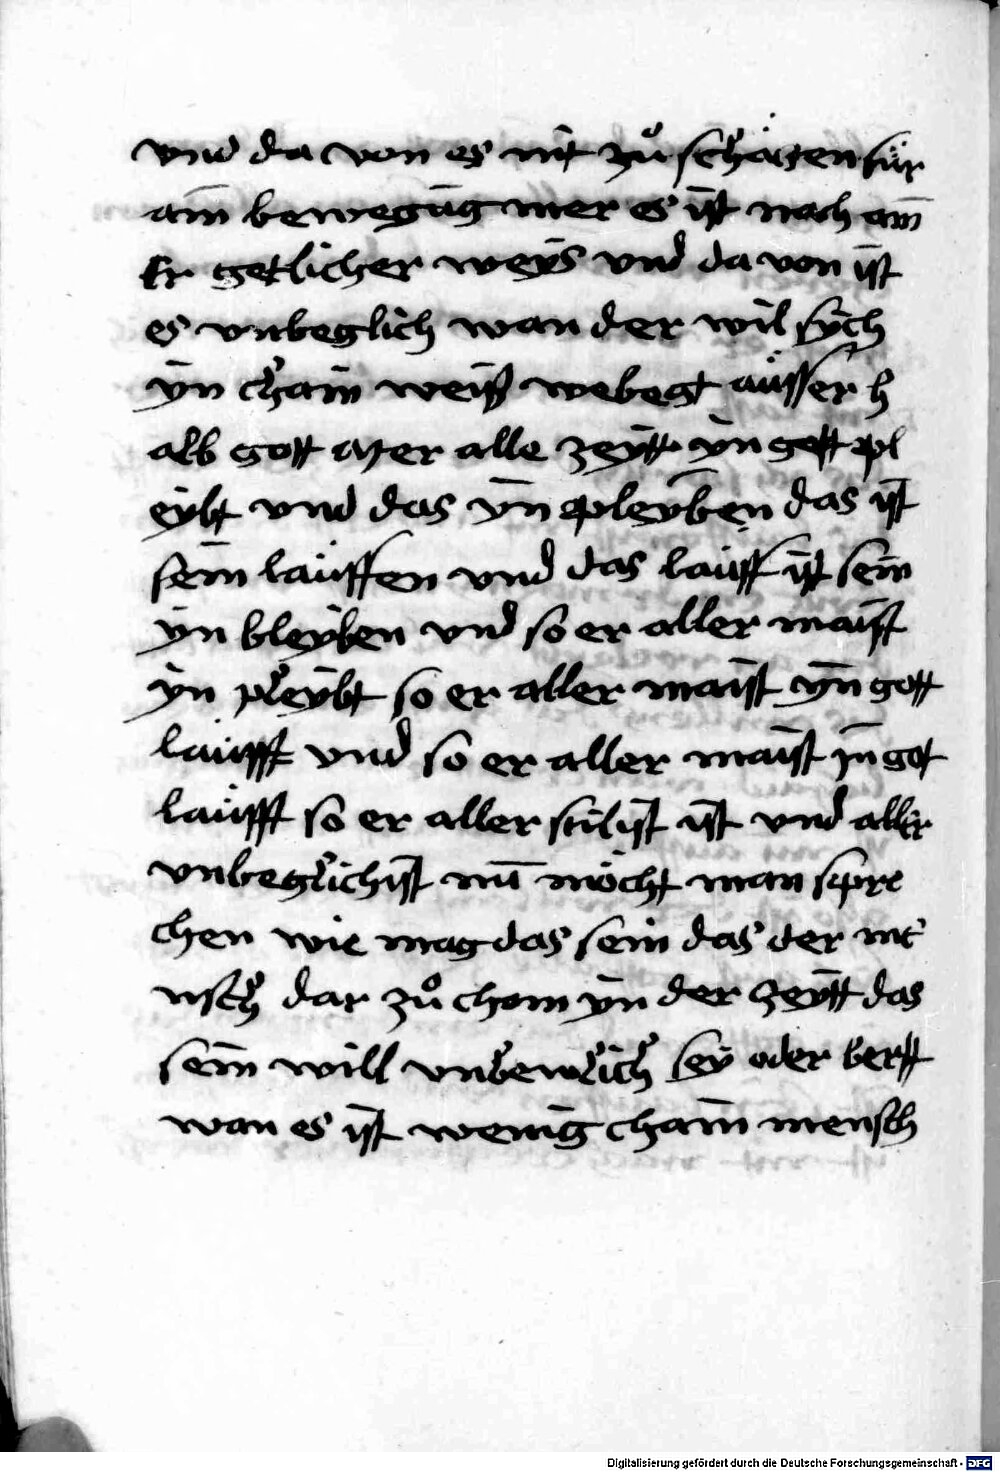 vnd da von es nit zuͦ schäczen für
ain bewegūg mer es ist nach ain
Er getlicher weys vnd da von ist
es vnbeglich wan der wil sych
yn chain weiß webegt aüsser h
alb gott aber alle zeytt yn gott pl
eybt vnd das yn pleyben das ist
sein lauffen vnd das lauff ist sein
yn bleyben vnd so er aller maist
yn pleybt so er aller maist yn gott
laufft vnd so er aller maist jn got
laufft so er aller stilist ist vnd aller
vnbeglichist nū möcht man spre
chen wie mag das sein das der me
nsch dar zuͦ chom yn der zeytt das
sein will vnbewlich sey oder
wan es ist wenig chain mensch
Digitalisierung gefördert durch die Deutsche Forschungsgemeinschaft - DFG